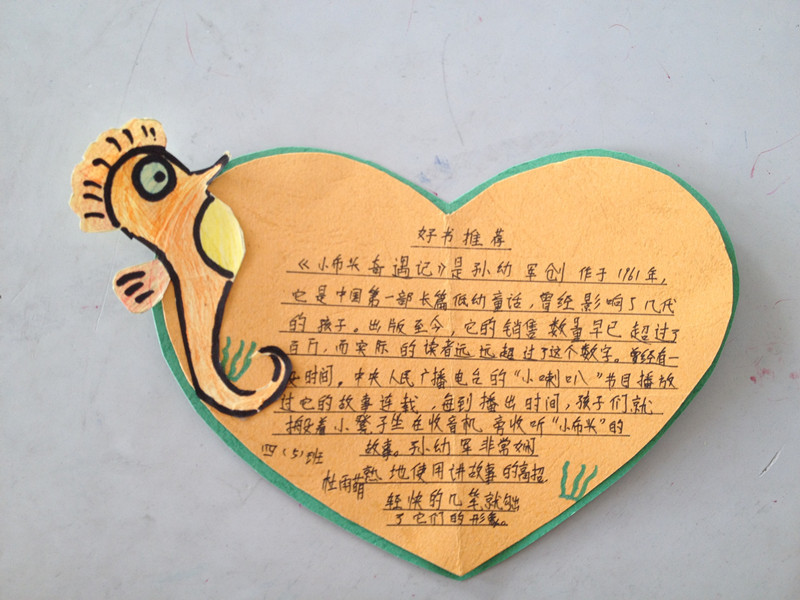 好书推荐
《小布头奇遇记》是孙幼军创作于1961年,
它是中国第一部长篇低幼童话,曾经影响了几代
的孩子。出版至今,它的销售数量早已超过了
百万,而实际的读者远远超过了这个数字。曾经有一
时间,中央人民广播电台的“小喇叭”节目播放
过它的故事连载,每到播出时间,孩子们就
着小凳子坐在收音机旁收听“小布头”的
故事。孙幼军非常娴
熟地使用讲故事的高招,
轻快的几笔就
了它们的形象。
四(5)班
杜雨萌